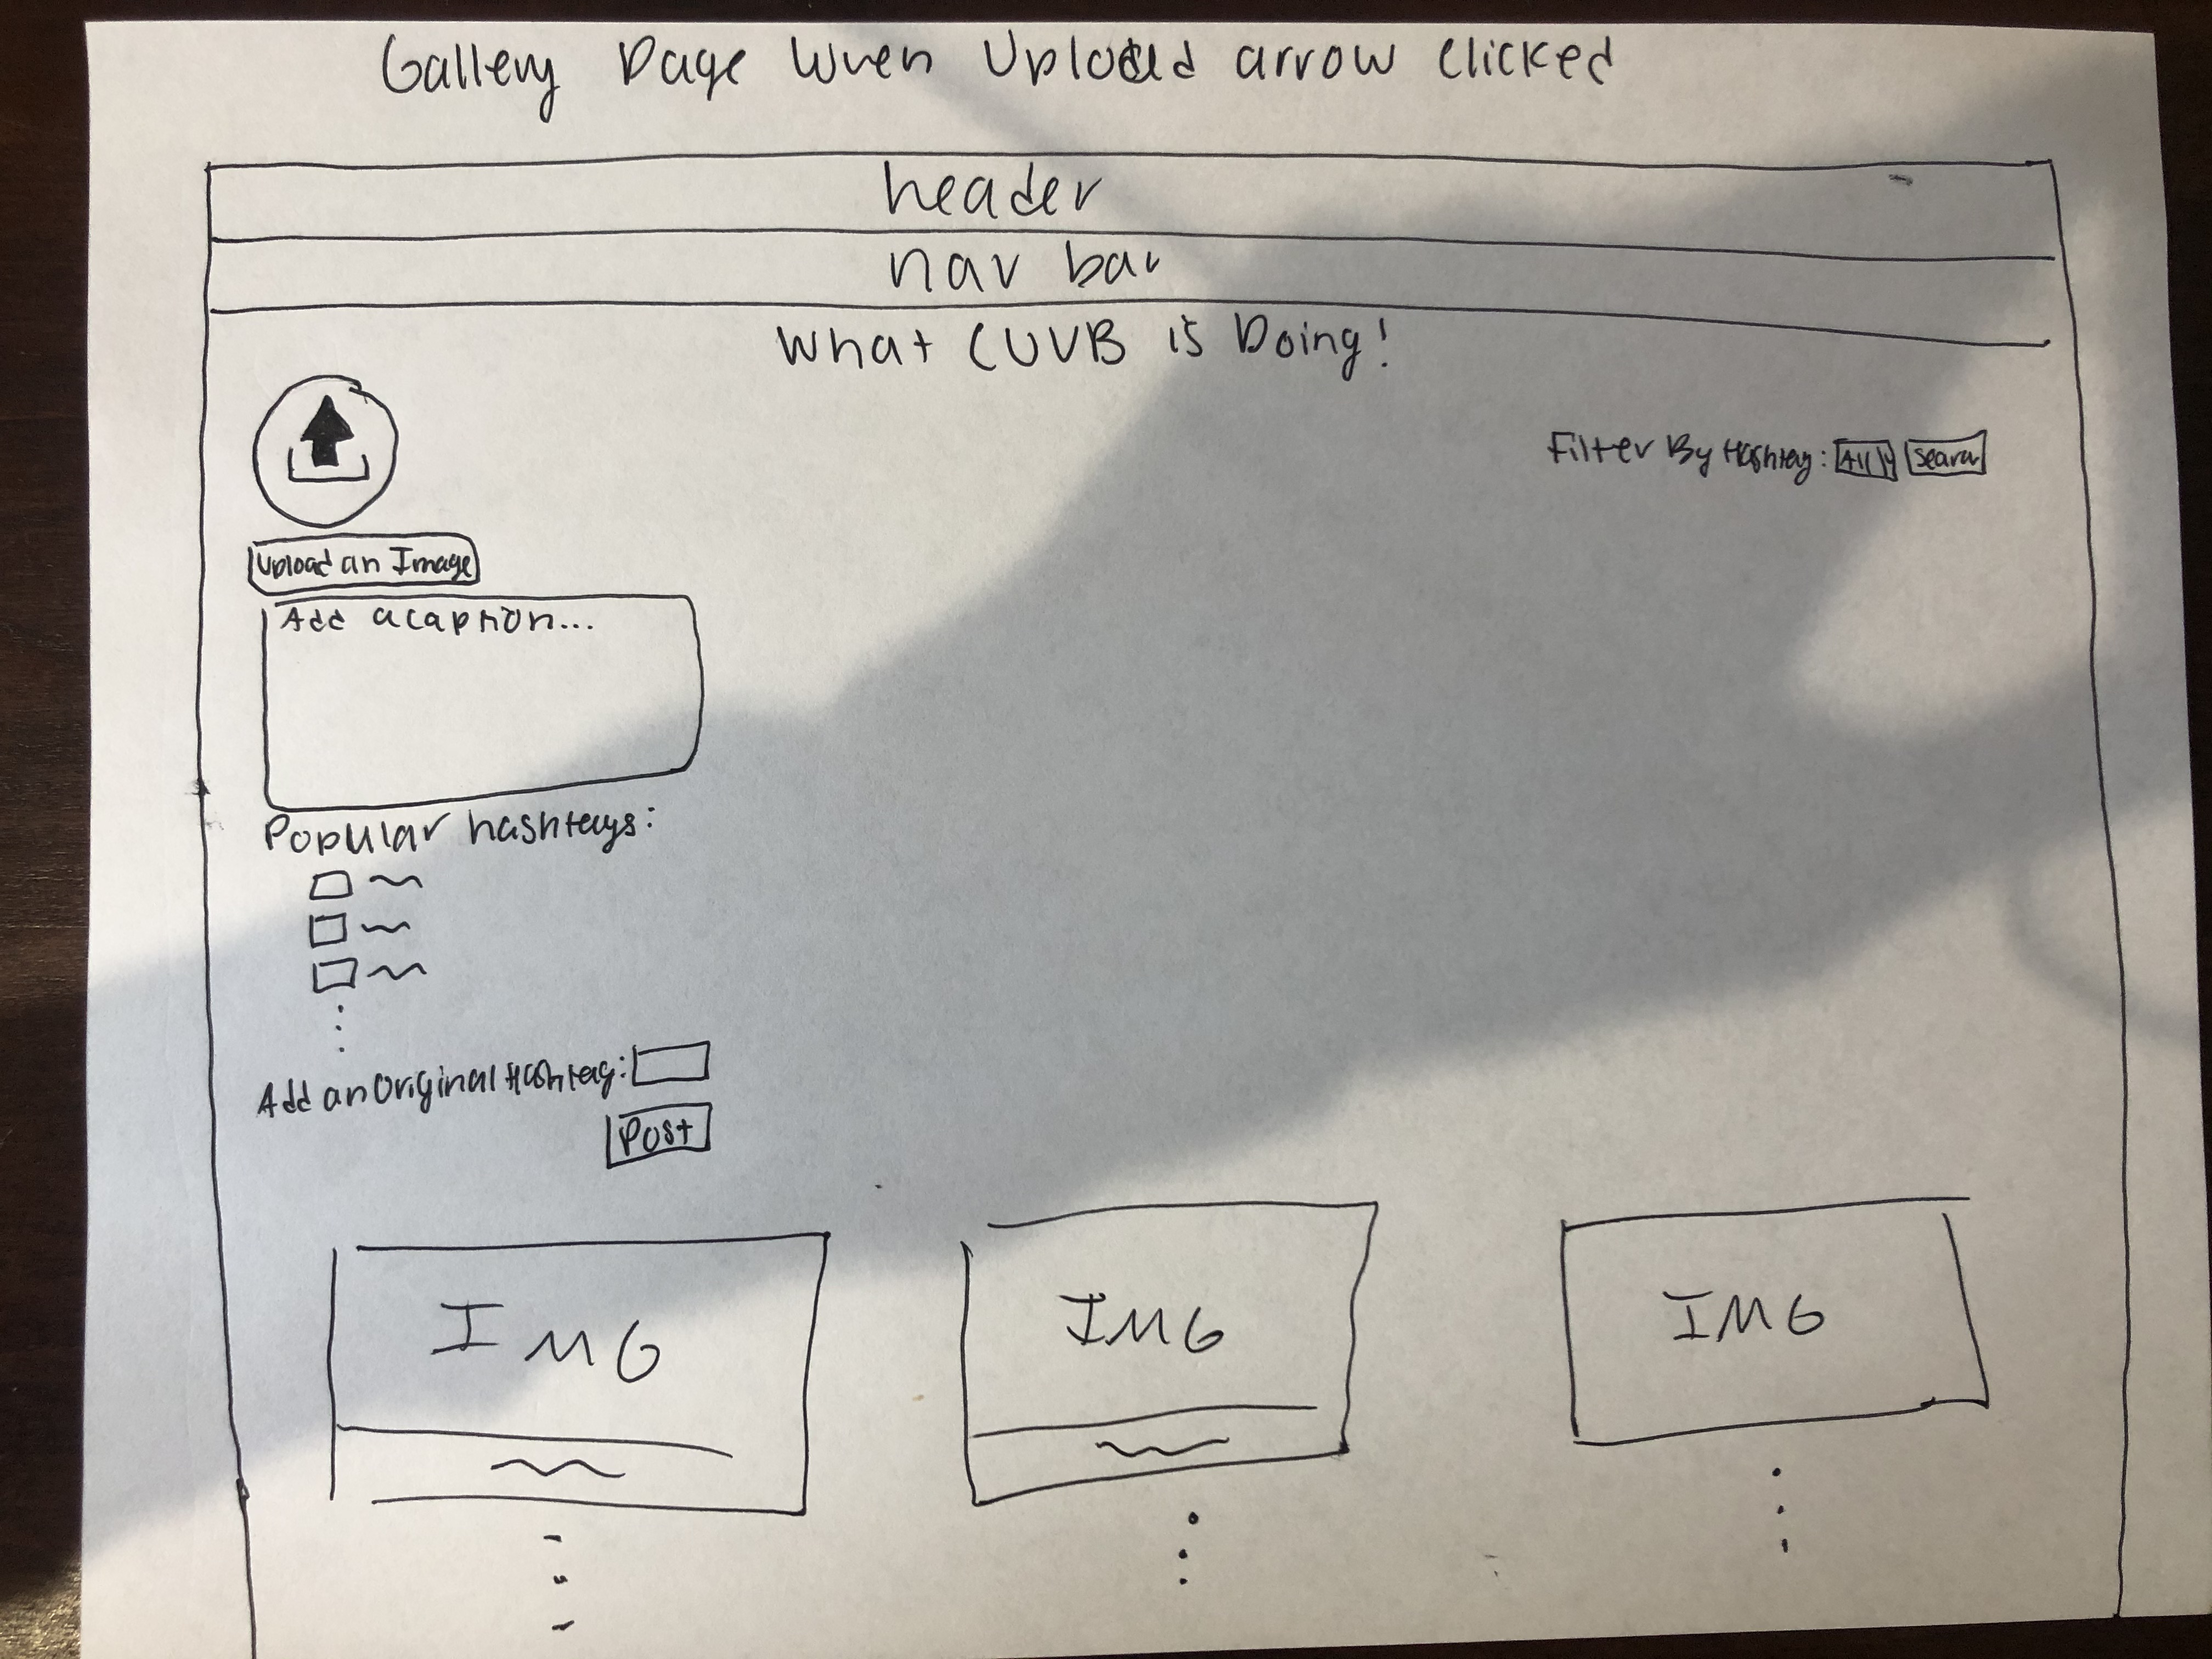 Gallery page when upload arrow clicked
header
nav bar
What CUVB is Doing!
Filter By Hashtag: All Search
Upload an Image
Add a caption...
Popular hashtags:
Add an Original Hashtag:
Post
IMG
IMG
IMG